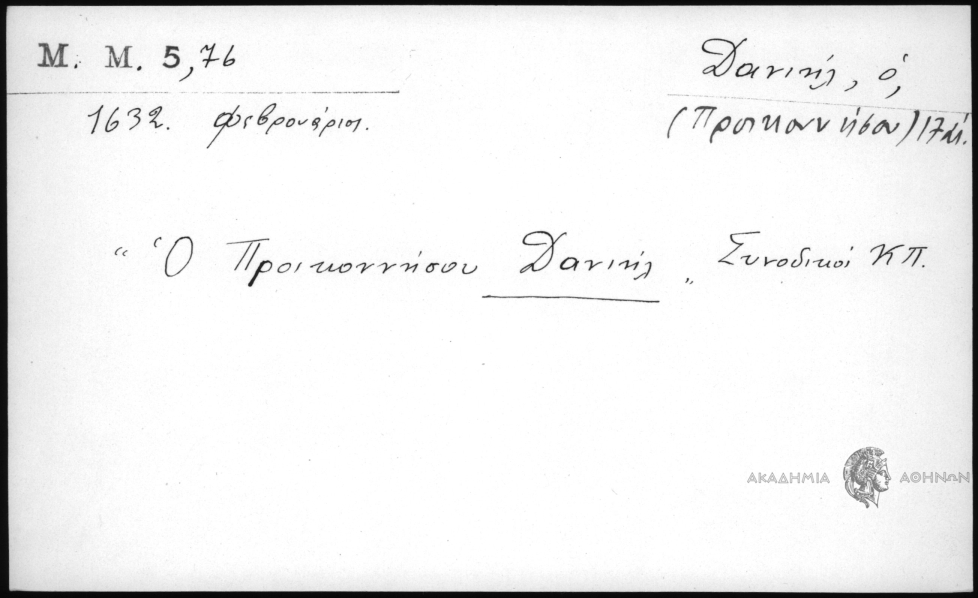 M. M. 5,76
Δανιήλ, ὁ,
1632. φεβρουάριοι.
(Προικοννήσου) 17 αἰ.
“ Ὁ Προικοννήσου Δανιήλ „ Συνοδικοί ΚΠ.
ΑΚΑΔΗΜΙΑ ΑΘΗΝΩΝ